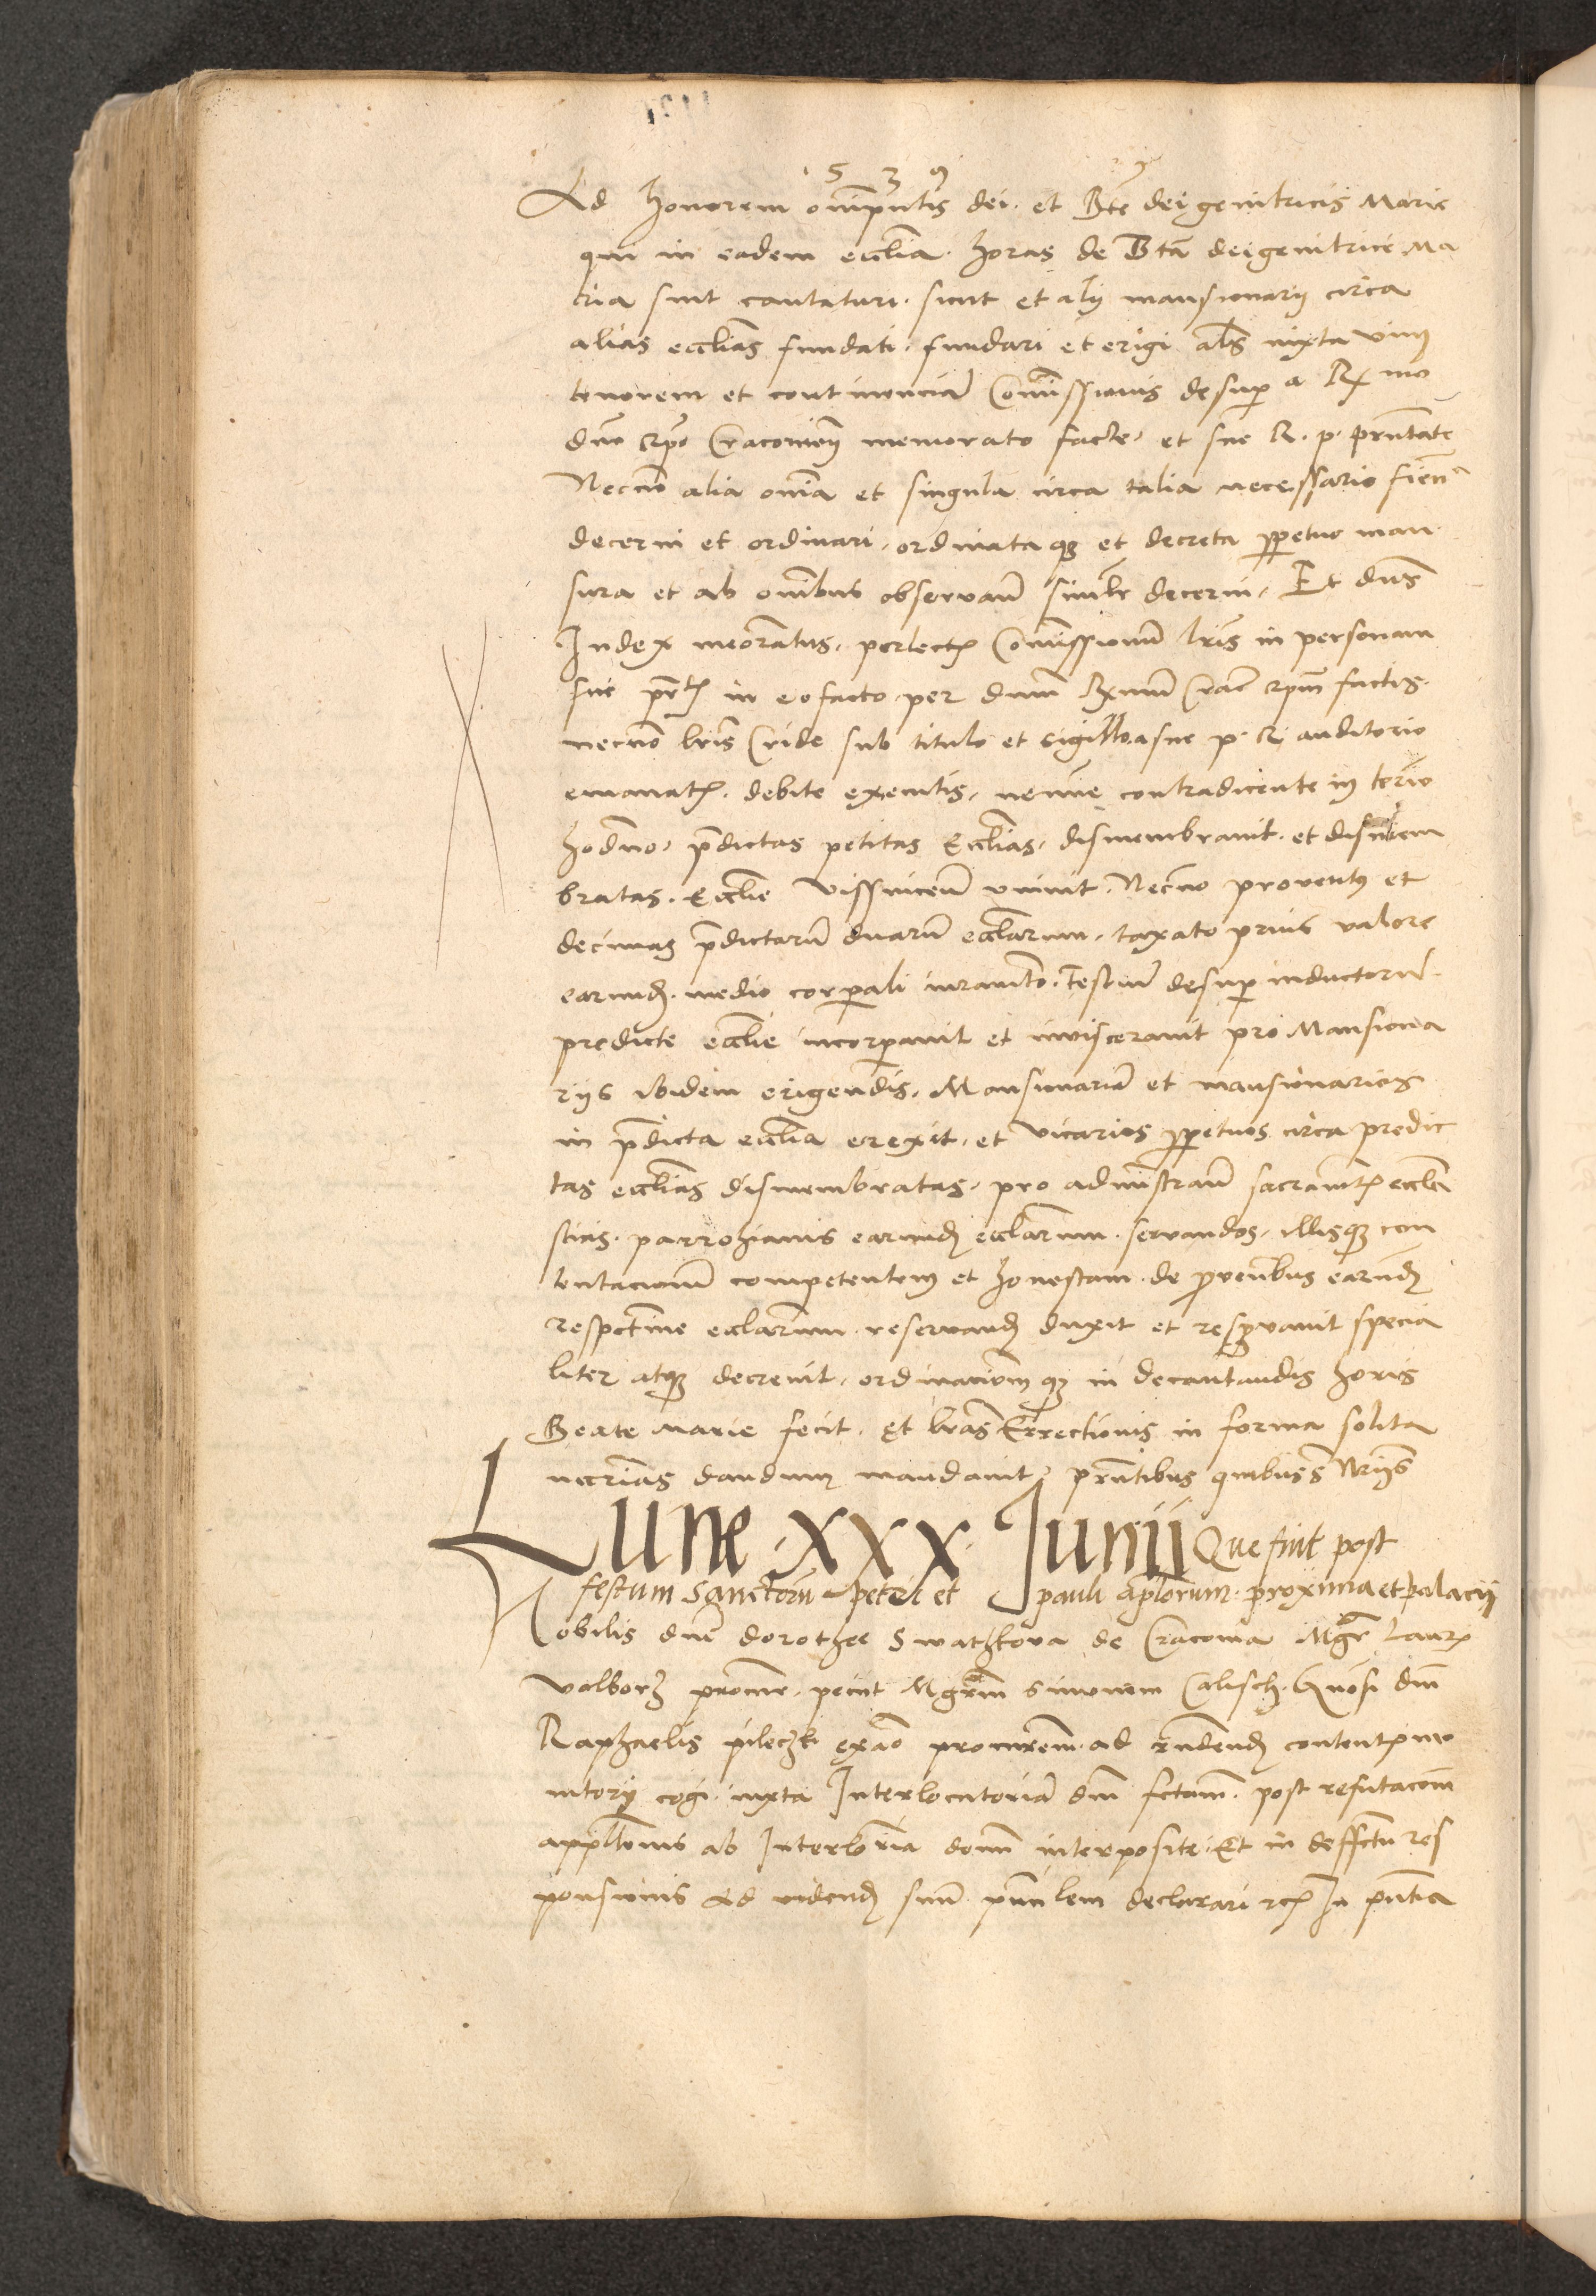 1 5 3 9
Ad honorem omnipntis dei et Bte dei genitricis Marie
qui in eadem ecclia horas de Bta dei genitrice Ma
ria sint cantaturi sicut et alij mansionarij circa
alias ecclias fundati fundari et erigi als iuxta vim
tenorem et continenciam Comissionis desuper a Rmo
dno Epo Cracovien memorato facte et sue R. p. prntate
Necno alia omnia et singula circa talia necessario fien
decerni et ordinari ordinataq et decreta perpetuo man
sura et ab omibus observan similr decerni Et dns
Iudex meoratus perlectis Comissionum lris in personam
sue prtis in eo facto per dnum Rmum Crac Epum factis
necno lris Cride sub titulo et sigillo a sue p. R auditorio
emanatis debite executis nemine contradicente in terio
hodno pdictas petitas Ecclias dismembravit et dismem
bratas Ecclie Vissnicen univit Necno proventus et
decimas pdictarum duarum ecclarum taxato prius valore
earund medio corporali iuramto testium desuper inductorum
predicte ecclie incorporavit et invisceravit pro Mansiona
rijs ibidem erigendis Mansionariam et mansionarios
in pdicta ecclia erexit et vicarios perpetuos circa predic
tas ecclias dismembratas pro administran sacramtis ecclia
sticis parrohianis earund ecclarum servandos illisq con
tentacionem competentem et honestam de provenibus earund
respective ecclarum reservand duxit et reservavit specia
liter atq decrevit ordinacionem q in decantandis horis
Beate Marie fecit et lras Errectionis in forma solita
necrias dandum mandavit prntibus quibus s Nrijs
Lune XXX Junij Que fuit post
festum Sanctoru petri et pauli aplorum proxima et palacij
Nobilis dne dorothee Swathkova de Cracovia Mgr Laur
Valborz procur pecut Mgrm Simonem Calisch Gnosi dni
Raphaelis pileczki exao procurem ad rndend contentis mo
nitorij cogi iuxta Interlocutoriam dni fctam post refutacom
appllonis ab Interloria domi interposite Et in deffctu res
ponsionis ad vidend suum punlem declarari rcp In pntia